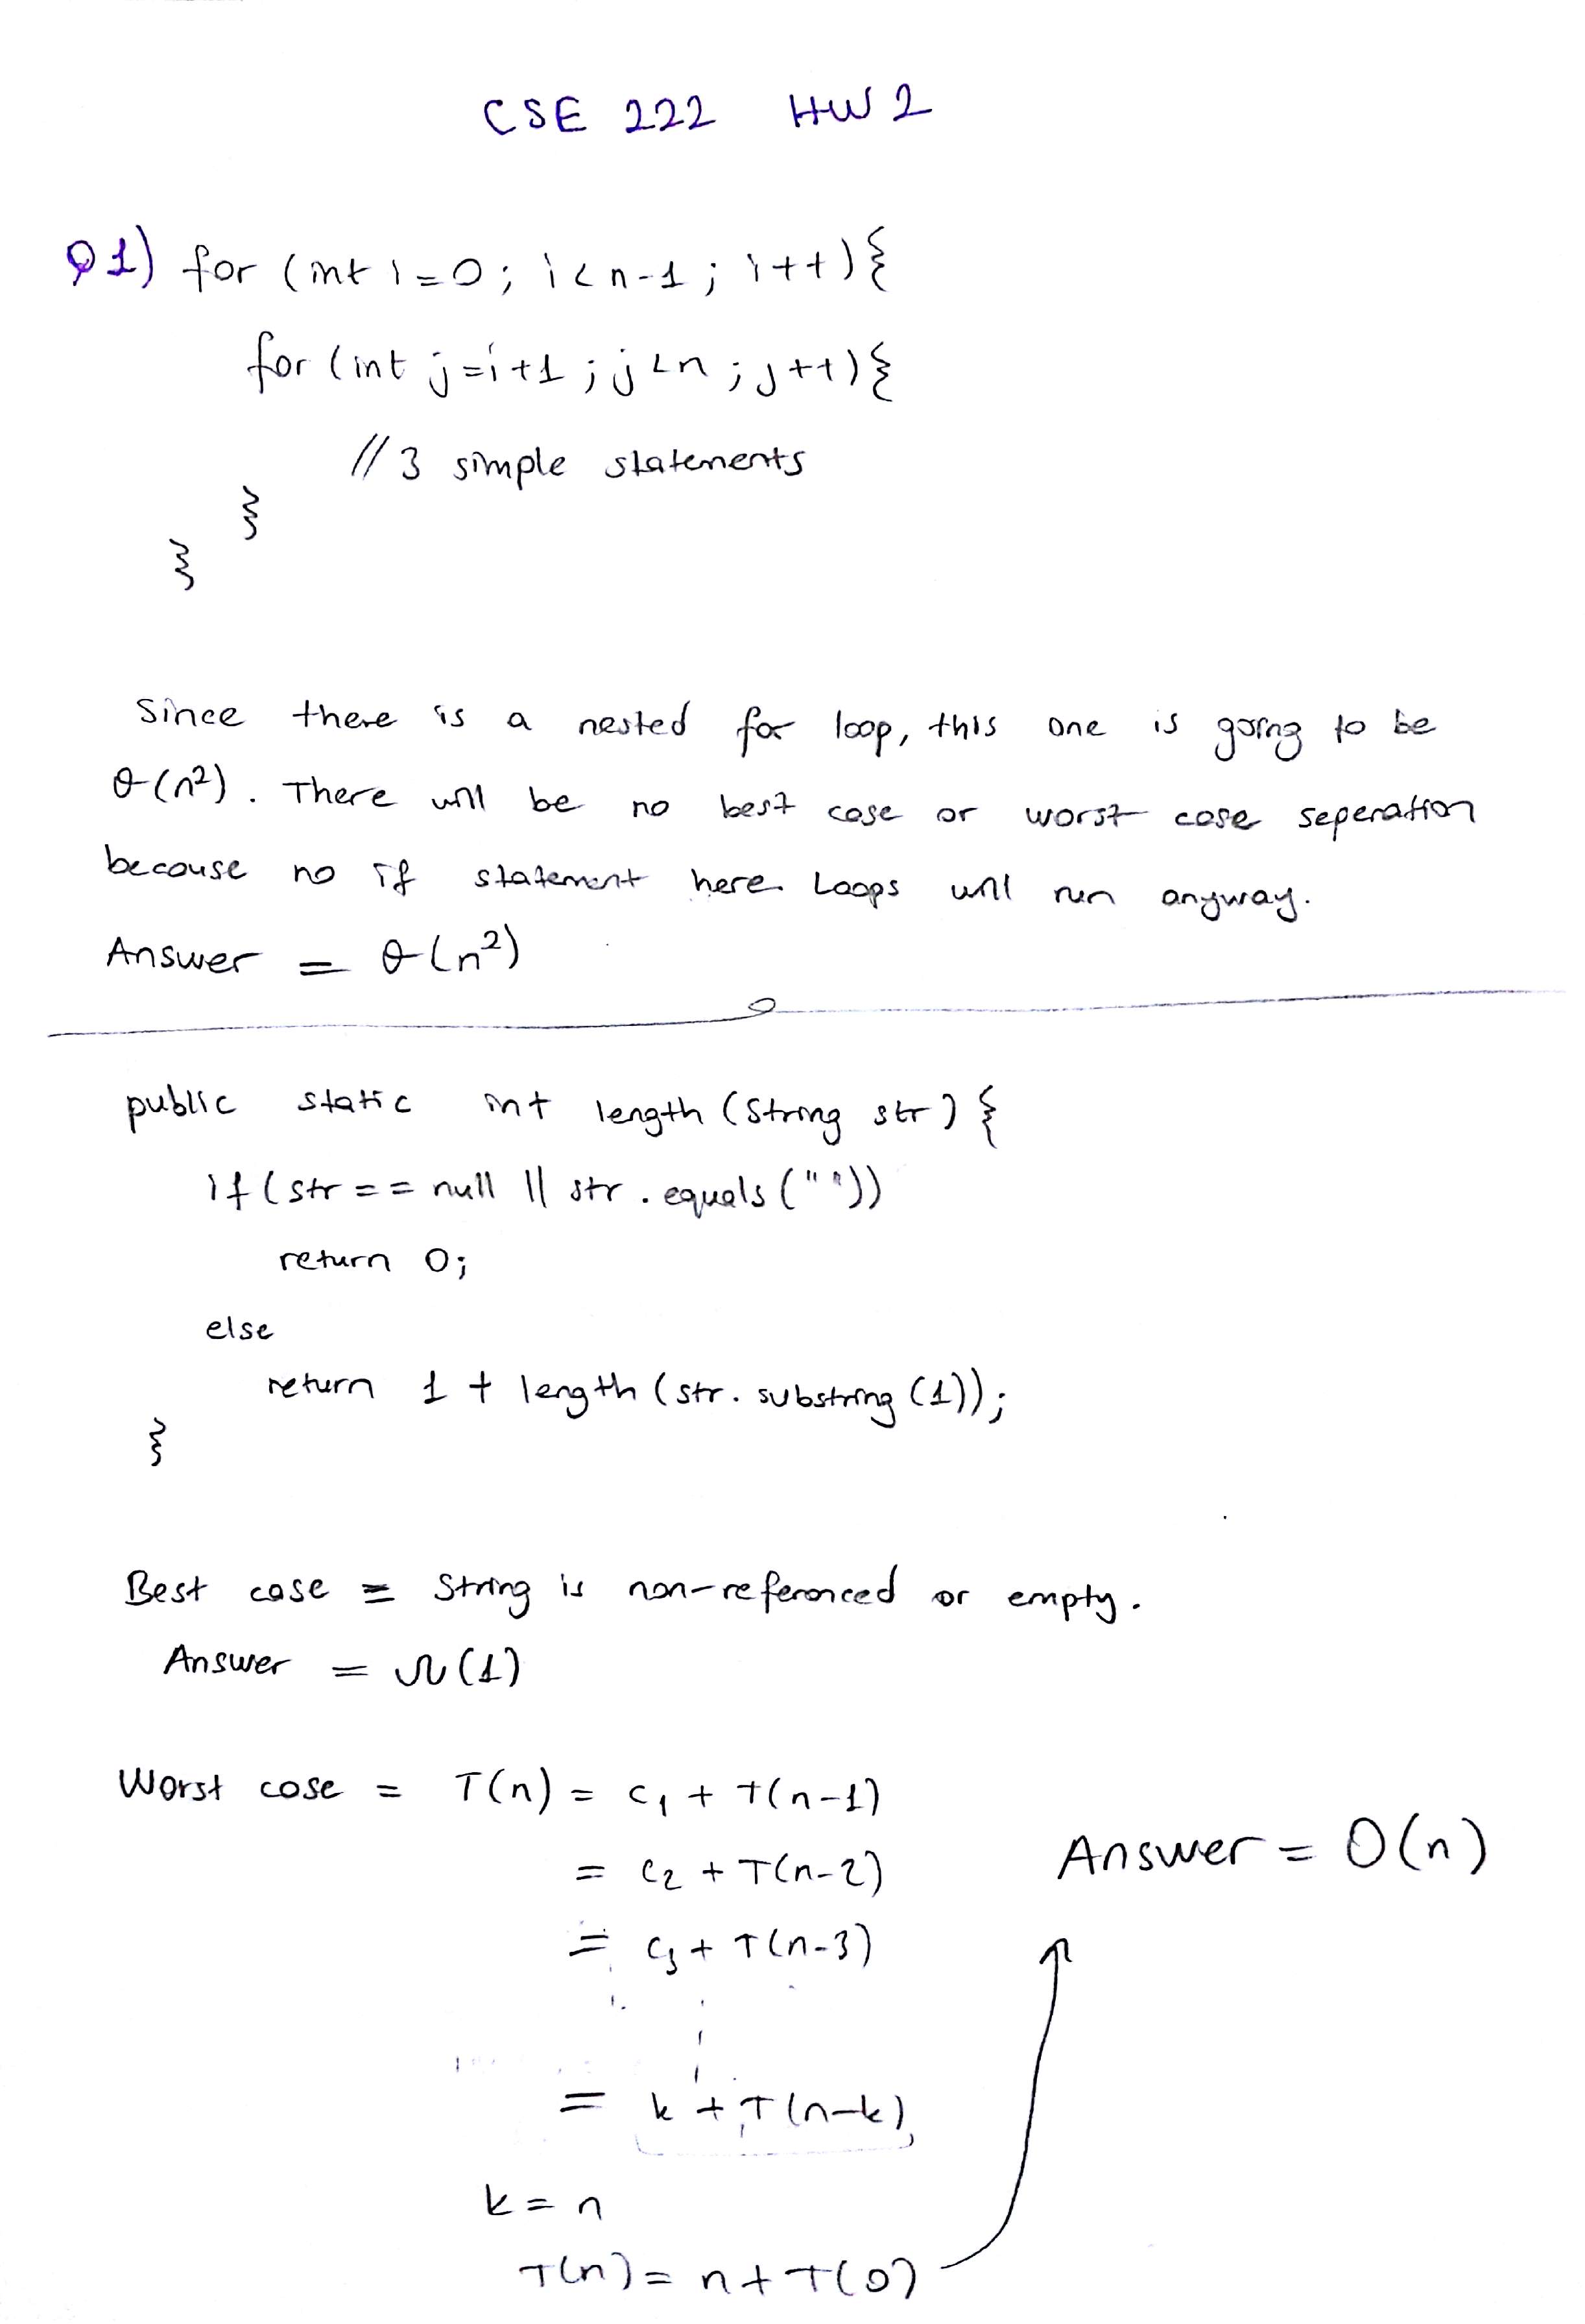 CSE 222 HW 2
Q1) for (int i=0; i<n-1; i++){
for (int j=i+1; j<n; j++){
// 3 simple statements
}
}
Since there is a nested for loop, this one is going to be
θ(n²). There will be no best case or worst case seperation
because no if statement here. Loops will run anyway.
Answer = θ(n²)
public static int length (String str) {
if (str == null || str.equals(""))
return 0;
else
return 1 + length (str.substring(1));
}
Best case = String is non-referenced or empty.
Answer = Ω(1)
Worst case = T(n) = c₁ + T(n-1)
= c₂ + T(n-2)
= c₃ + T(n-3)
Answer = O(n)
= k + T(n-k)
k = n
T(n) = n + T(0)